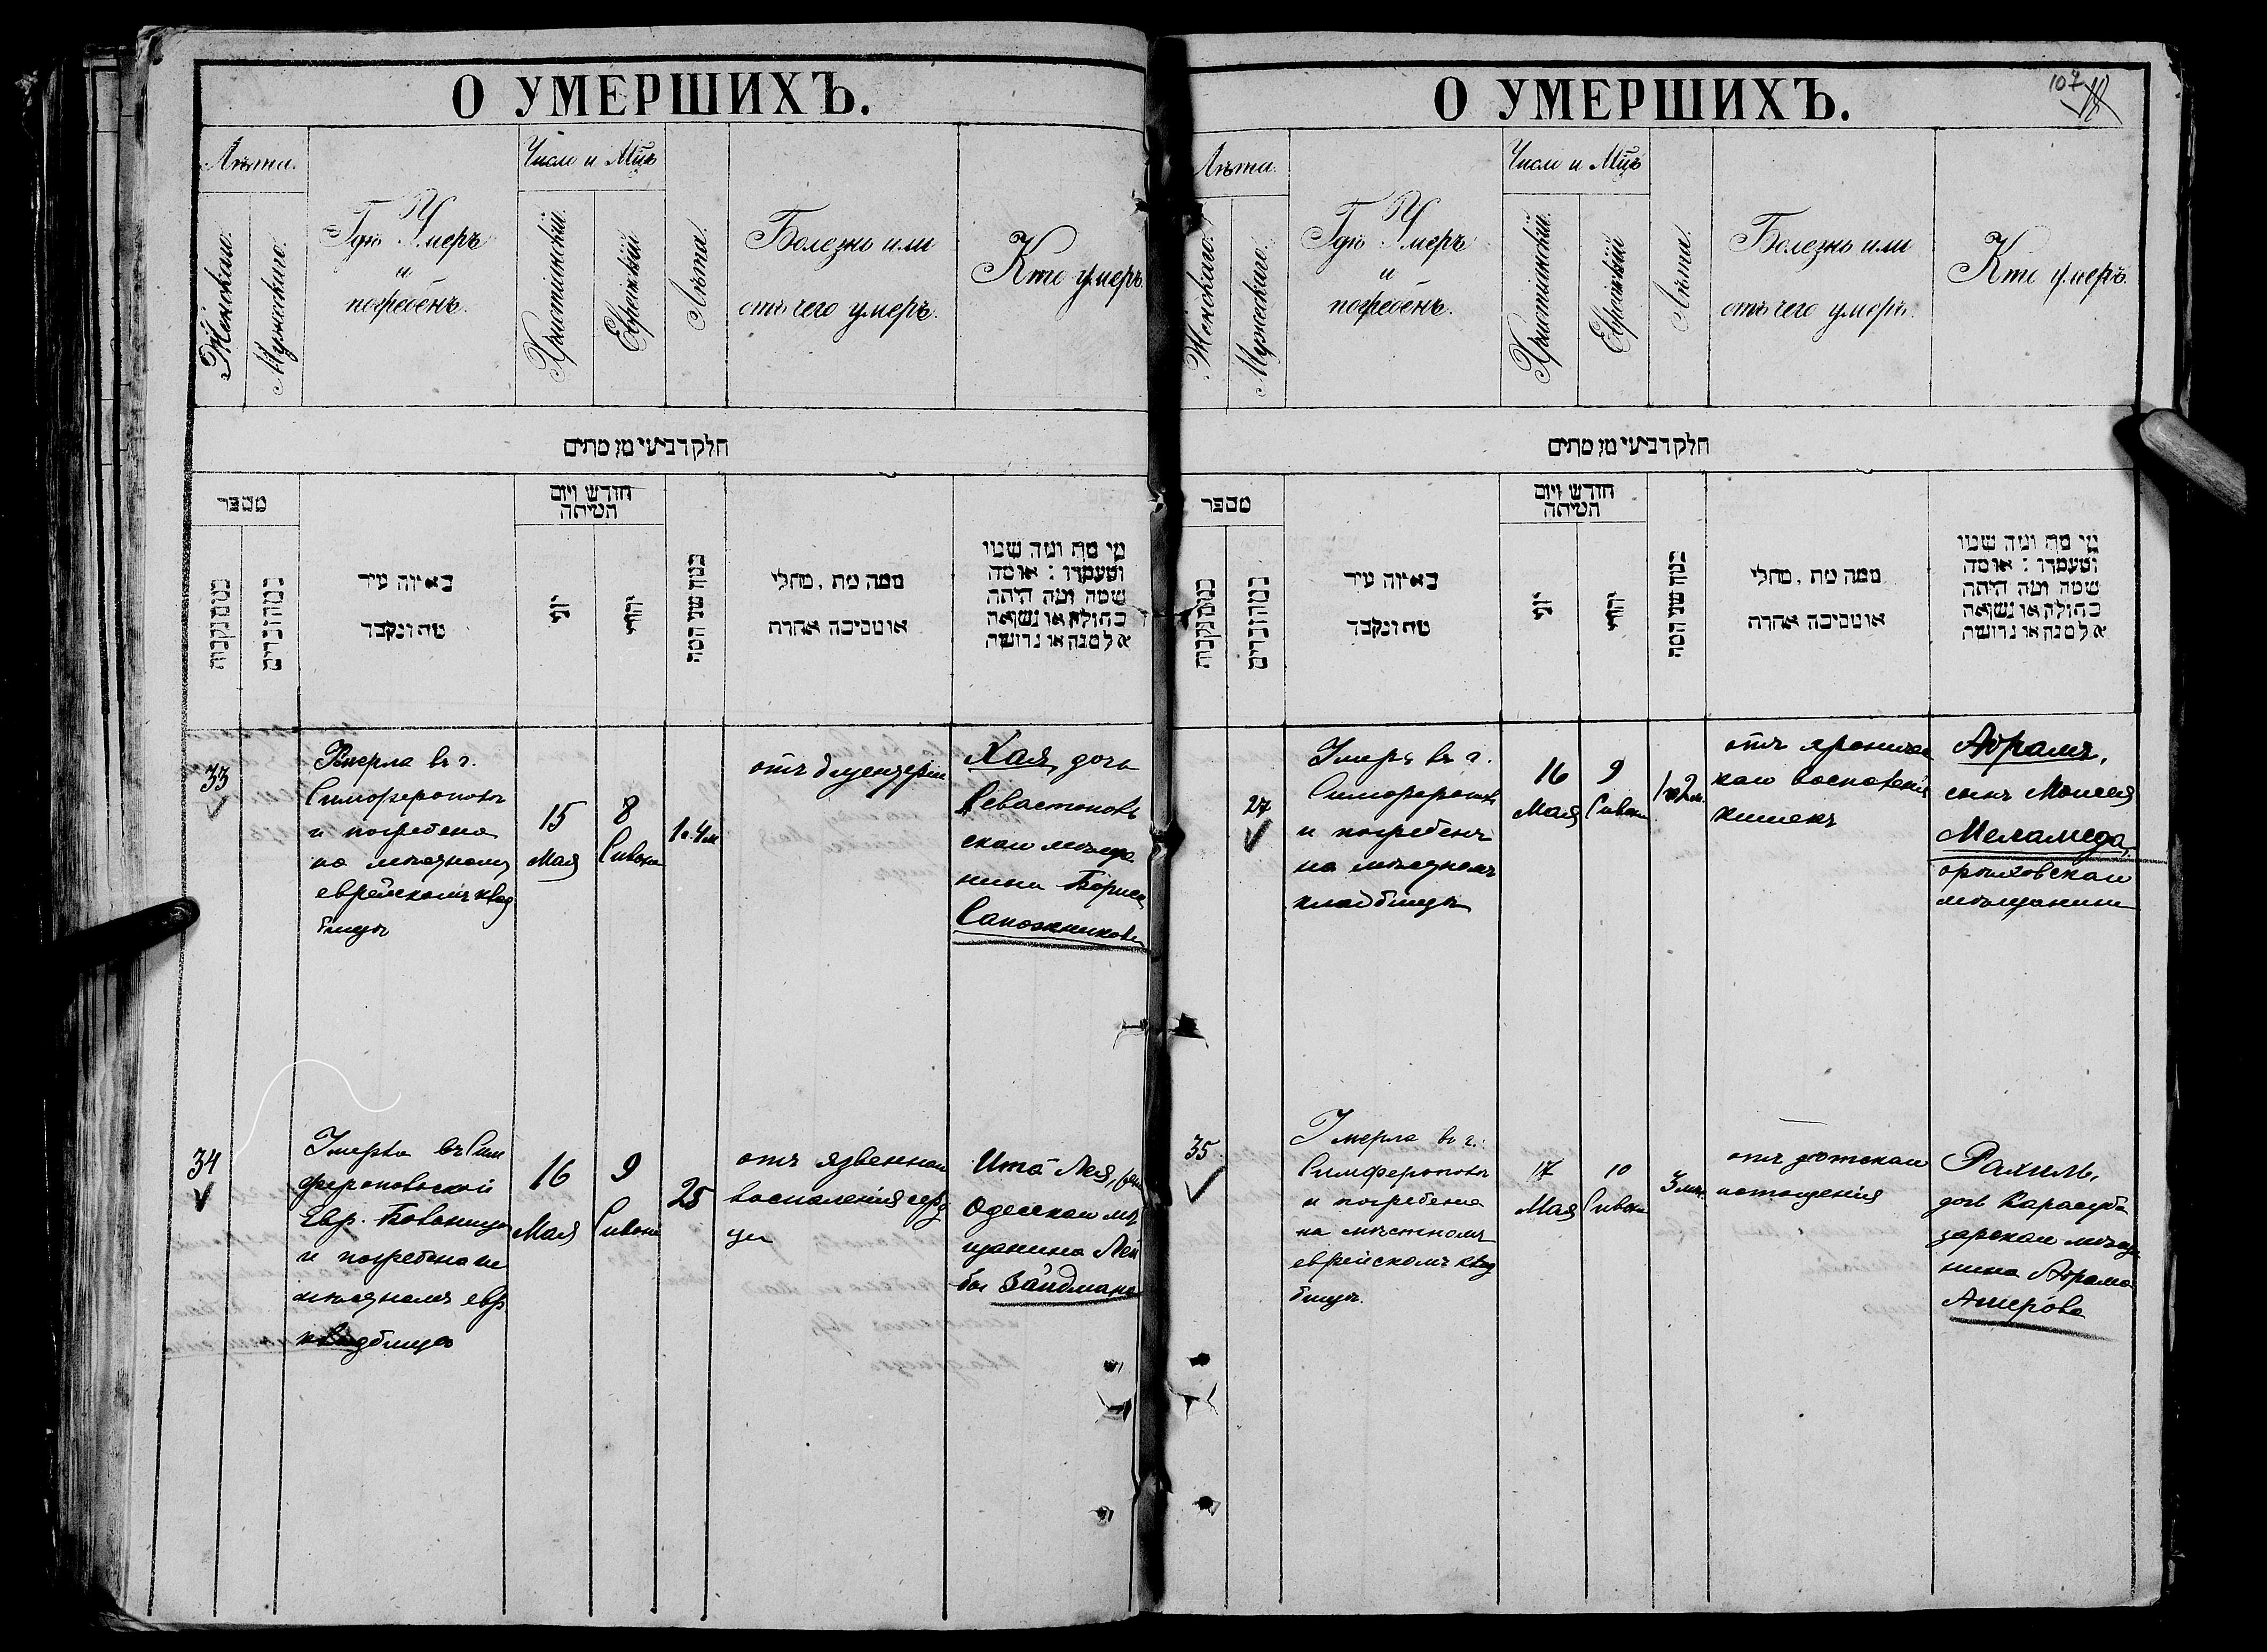 О УМЕРШИХЪ.
Лѣта.
Женскаго.
Мужескаго.
Гдѣ Умеръ
и
погребенъ.
Число и Мцъ
Християнскій.
Еврейскій
Лѣта.
Болезнь или
отъ чего умеръ.
Кто умеръ.
חלק רביעי מן מתים
מספר
כמה נקבות
כמה זכרים
באיזה עיר
מת ונקבר
חודש ויום
המיתה
יוני
יהודי
כמה שני המת
ממה מת, מחלי
או מסיבה אחרת
מי מת ומה שמו
ומעמדו: או מה
שמה ומה היתה
בתולה או נשואה
אלמנה או גרושה
33
Умерла въ г.
Симферополѣ
и погребена
на мѣстномъ
еврейскомъ клад
бищѣ
15
Мая
8
Сивана
1 г. 4 м
отъ дизентеріи
Хая, дочь
Севастополь
скаго мѣща
нина Бориса
Сапожникова
34
Умерла въ Сим
феропольской
Евр. Больницѣ
и погребена на
мѣстномъ евр.
кладбищѣ
16
Мая
9
Сивана
25
отъ язвеннаго
воспаленія серд
ца
Ита Лея, жена
Одесскаго мѣ
щанина Лей
бы Зайдмана
О УМЕРШИХЪ.
107
Лѣта.
Женскаго.
Мужескаго.
Гдѣ Умеръ
и
погребенъ.
Число и Мцъ
Християнскій.
Еврейскій
Лѣта.
Болезнь или
отъ чего умеръ.
Кто умеръ.
חלק רביעי מן מתים
מספר
כמה נקבות
כמה זכרים
באיזה עיר
מת ונקבר
חודש ויום
המיתה
יוני
יהודי
כמה שני המת
ממה מת, מחלי
או מסיבה אחרת
מי מת ומה שמו
ומעמדו: או מה
שמה ומה היתה
בתולה או נשואה
אלמנה או גרושה
27
Умеръ въ г.
Симферополѣ
и погребенъ
на мѣстномъ
кладбищѣ
16
Мая
9
Сивана
1 г. 2 м.
отъ хроничес
каго воспаленія
кишекъ
Абрамъ,
сынъ Моисея
Меламеда,
орѣховскаго
мѣщанина
35
Умерла въ г.
Симферополѣ
и погребена
на мѣстномъ
еврейскомъ клад
бищѣ.
17
Мая
10
Сивана
3 мѣс.
отъ дѣтскаго
истощенія
Рахиль,
дочь Карасуба
зарскаго мѣща
нина Абрама
Ашерова